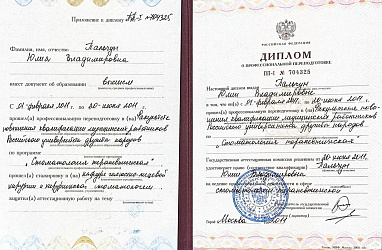 Приложение к диплому ПП-I № 704325
Фамилия, имя, отчество Пальчун
Юлия Владимировна
имеет документ об образовании высшем
С 01 февраля 2011 г. по 20 июня 2011 г.
прошел(а) профессиональную переподготовку в (на) Факультете
повышения квалификации медицинских работников
Российского университета дружбы народов
по программе
"Стоматология терапевтическая"
прошел(а) стажировку в (на) кафедре челюстно-лицевой
хирургии и хирургической стоматологии
защитил(а) аттестационную работу на тему
РОССИЙСКАЯ ФЕДЕРАЦИЯ
ДИПЛОМ
О ПРОФЕССИОНАЛЬНОЙ ПЕРЕПОДГОТОВКЕ
ПП-I № 704325
Настоящий диплом выдан Пальчун
Юлии Владимировне
в том, что он(а) с 01 февраля 2011 г. по 20 июня 2011 г.
прошел(а) профессиональную переподготовку в (на) Факультете повы-
шения квалификации медицинских работников
Российского университета дружбы народов
по
"Стоматология терапевтическая"
Государственная аттестационная комиссия решением от 20 июня 2011
удостоверяет право Пальчун
Юлии Владимировны
на ведение профессиональной деятельности в сфере
стоматологии терапевтической
Город Москва 2011